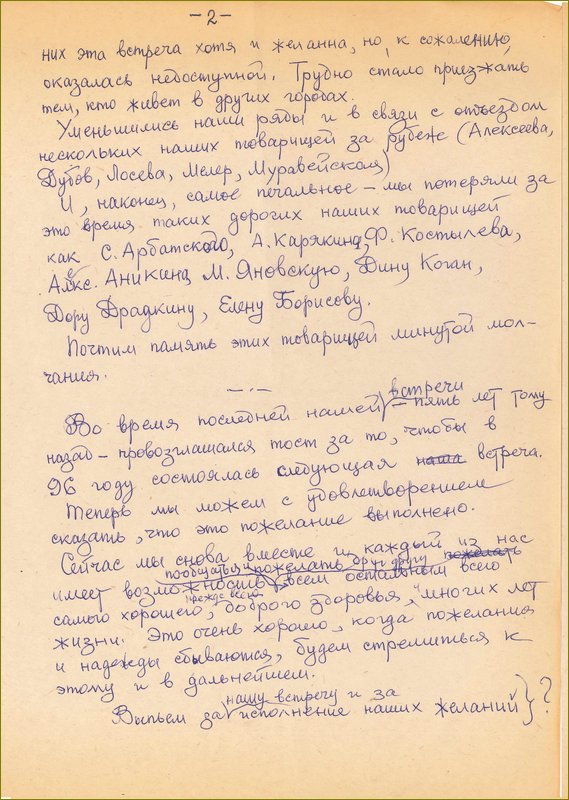 -2-
них эта встреча хотя и желанна, но, к сожалению,
оказалась недоступной. Трудно стало приезжать
тем, кто живет в других городах.
Уменьшились наши ряды и в связи с отъездом
нескольких наших товарищей за рубеж (Алексеева,
Дубов, Лосева, Мелер, Муравейская)
И, наконец, самое печальное – мы потеряли за
это время таких дорогих наших товарищей
как С. Арбатского, А. Карякина, Ф. Костылева,
Алекс. Аникина М. Яновскую, Дину Коган,
Дору Драдкину, Елену Борисову.
Почтим память этих товарищей минутой мол-
чания.
встречи
Во время последней нашей – пять лет тому
назад – провозглашался тост за то, чтобы в
96 году состоялась следующая наша встреча.
Теперь мы можем с удовлетворением
сказать, что это пожелание выполнено.
Сейчас мы снова вместе и каждый из нас
пообщаться и пожелать друг другу пожелать
имеет возможность всем остальным всего
прежде всего
самого хорошего, доброго здоровья, многих лет
жизни. Это очень хорошо, когда пожелания
и надежды сбываются, будем стремиться к
этому и в дальнейшем.
нашу встречу и за
Выпьем за исполнение наших желаний } ?